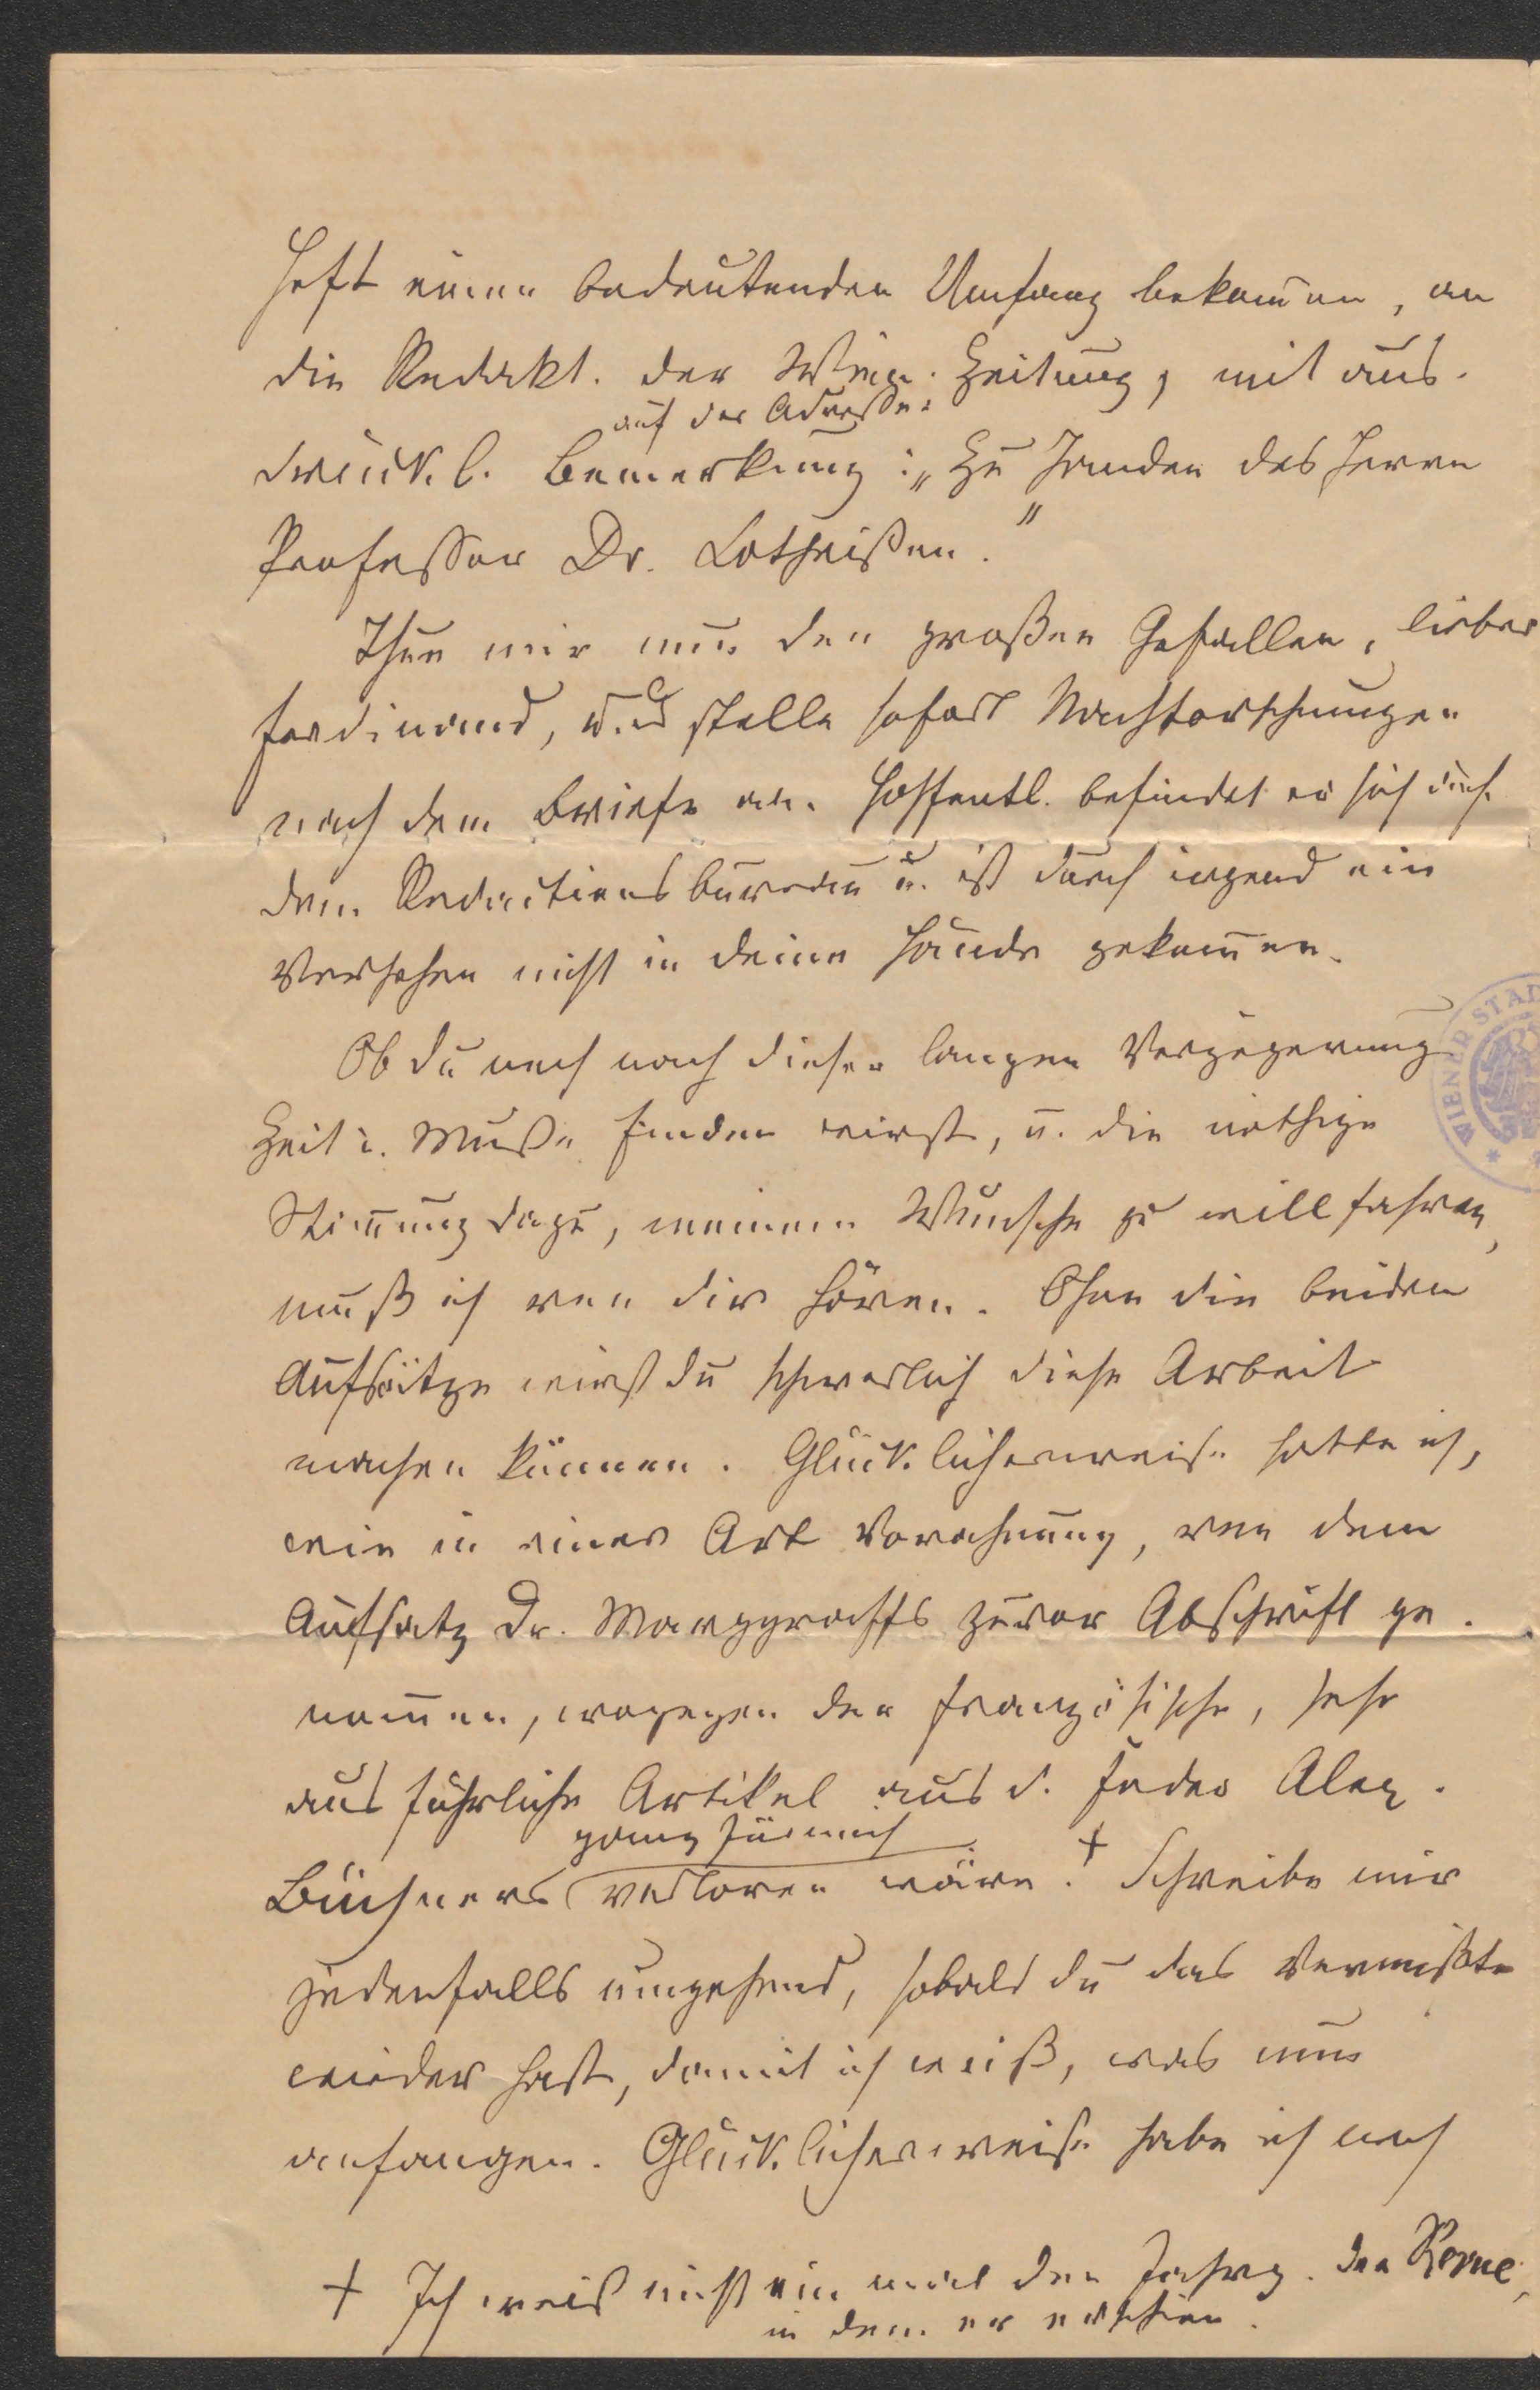 Heft einen bedeutenden Umfang bekom̄en, an
die Redakt. der Wien. Zeitung, mit aus-
auf der Adresse:
drückl. Bemerkung: „Zu Handen des Herrn
Professor Dr. Lotheißen."
Thue mir nun den großen Gefallen, lieber
Ferdinand, und stelle sofort Nachforschungen
nach dem Briefe an. Hoffentl. befindet er sich auf
dem Redactionsbureau u. ist durch irgend ein
Versehen nicht in deine Hände gekom̄en.
Ob du noch nach dieser langen Verzögerung
Zeit u. Muße finden wirst, u. die nöthige
Stim̄ung dazu, meinem Wunsche zu willfahren,
muß ich von dir hören. Ohne die beiden
Aufsätze wirst du schwerlich diese Arbeit
machen können. Glücklicherweise hatte ich,
wie in einer Art Vorahnung, von dem
Aufsatz Dr. Marggraffs zuvor Abschrift ge-
nom̄en, wogegen der französische, sehr
ausführliche Artikel aus d. Feder Alex.
ganz für mich
Büchners verloren wäre. + Schreibe mir
jedenfalls umgehend, sobald du das Vermißte
wieder hast, damit ich weiß, was nun
anfangen. Glücklicherweise habe ich noch
+ Ich weiß nicht ein mal den Jahrg. der Revue,
in dem er erschien.
WIENER STAD